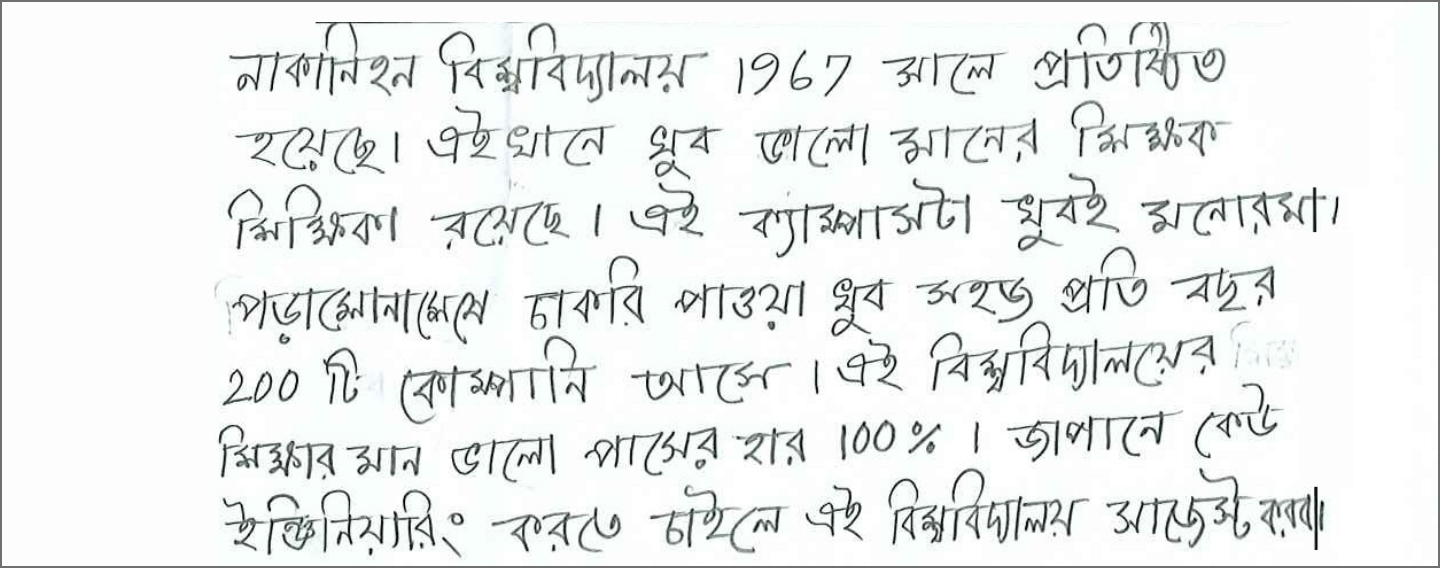 নাকানিহন বিশ্ববিদ্যালয় 1967 সালে প্রতিষ্ঠিত
হয়েছে। এইখানে খুব ভালো মানের শিক্ষক
শিক্ষিকা রয়েছে। এই ক্যাম্পাসটা খুবই মনোরমা।
পড়াশোনাশেষে চাকরি পাওয়া খুব সহজ প্রতি বছর
200 টি কোম্পানি আসে। এই বিশ্ববিদ্যালয়ের
শিক্ষার মান ভালো পাসের হার 100%। জাপানে কেউ
ইঞ্জিনিয়ারিং করতে চাইলে এই বিশ্ববিদ্যালয় সাজেস্ট করব।